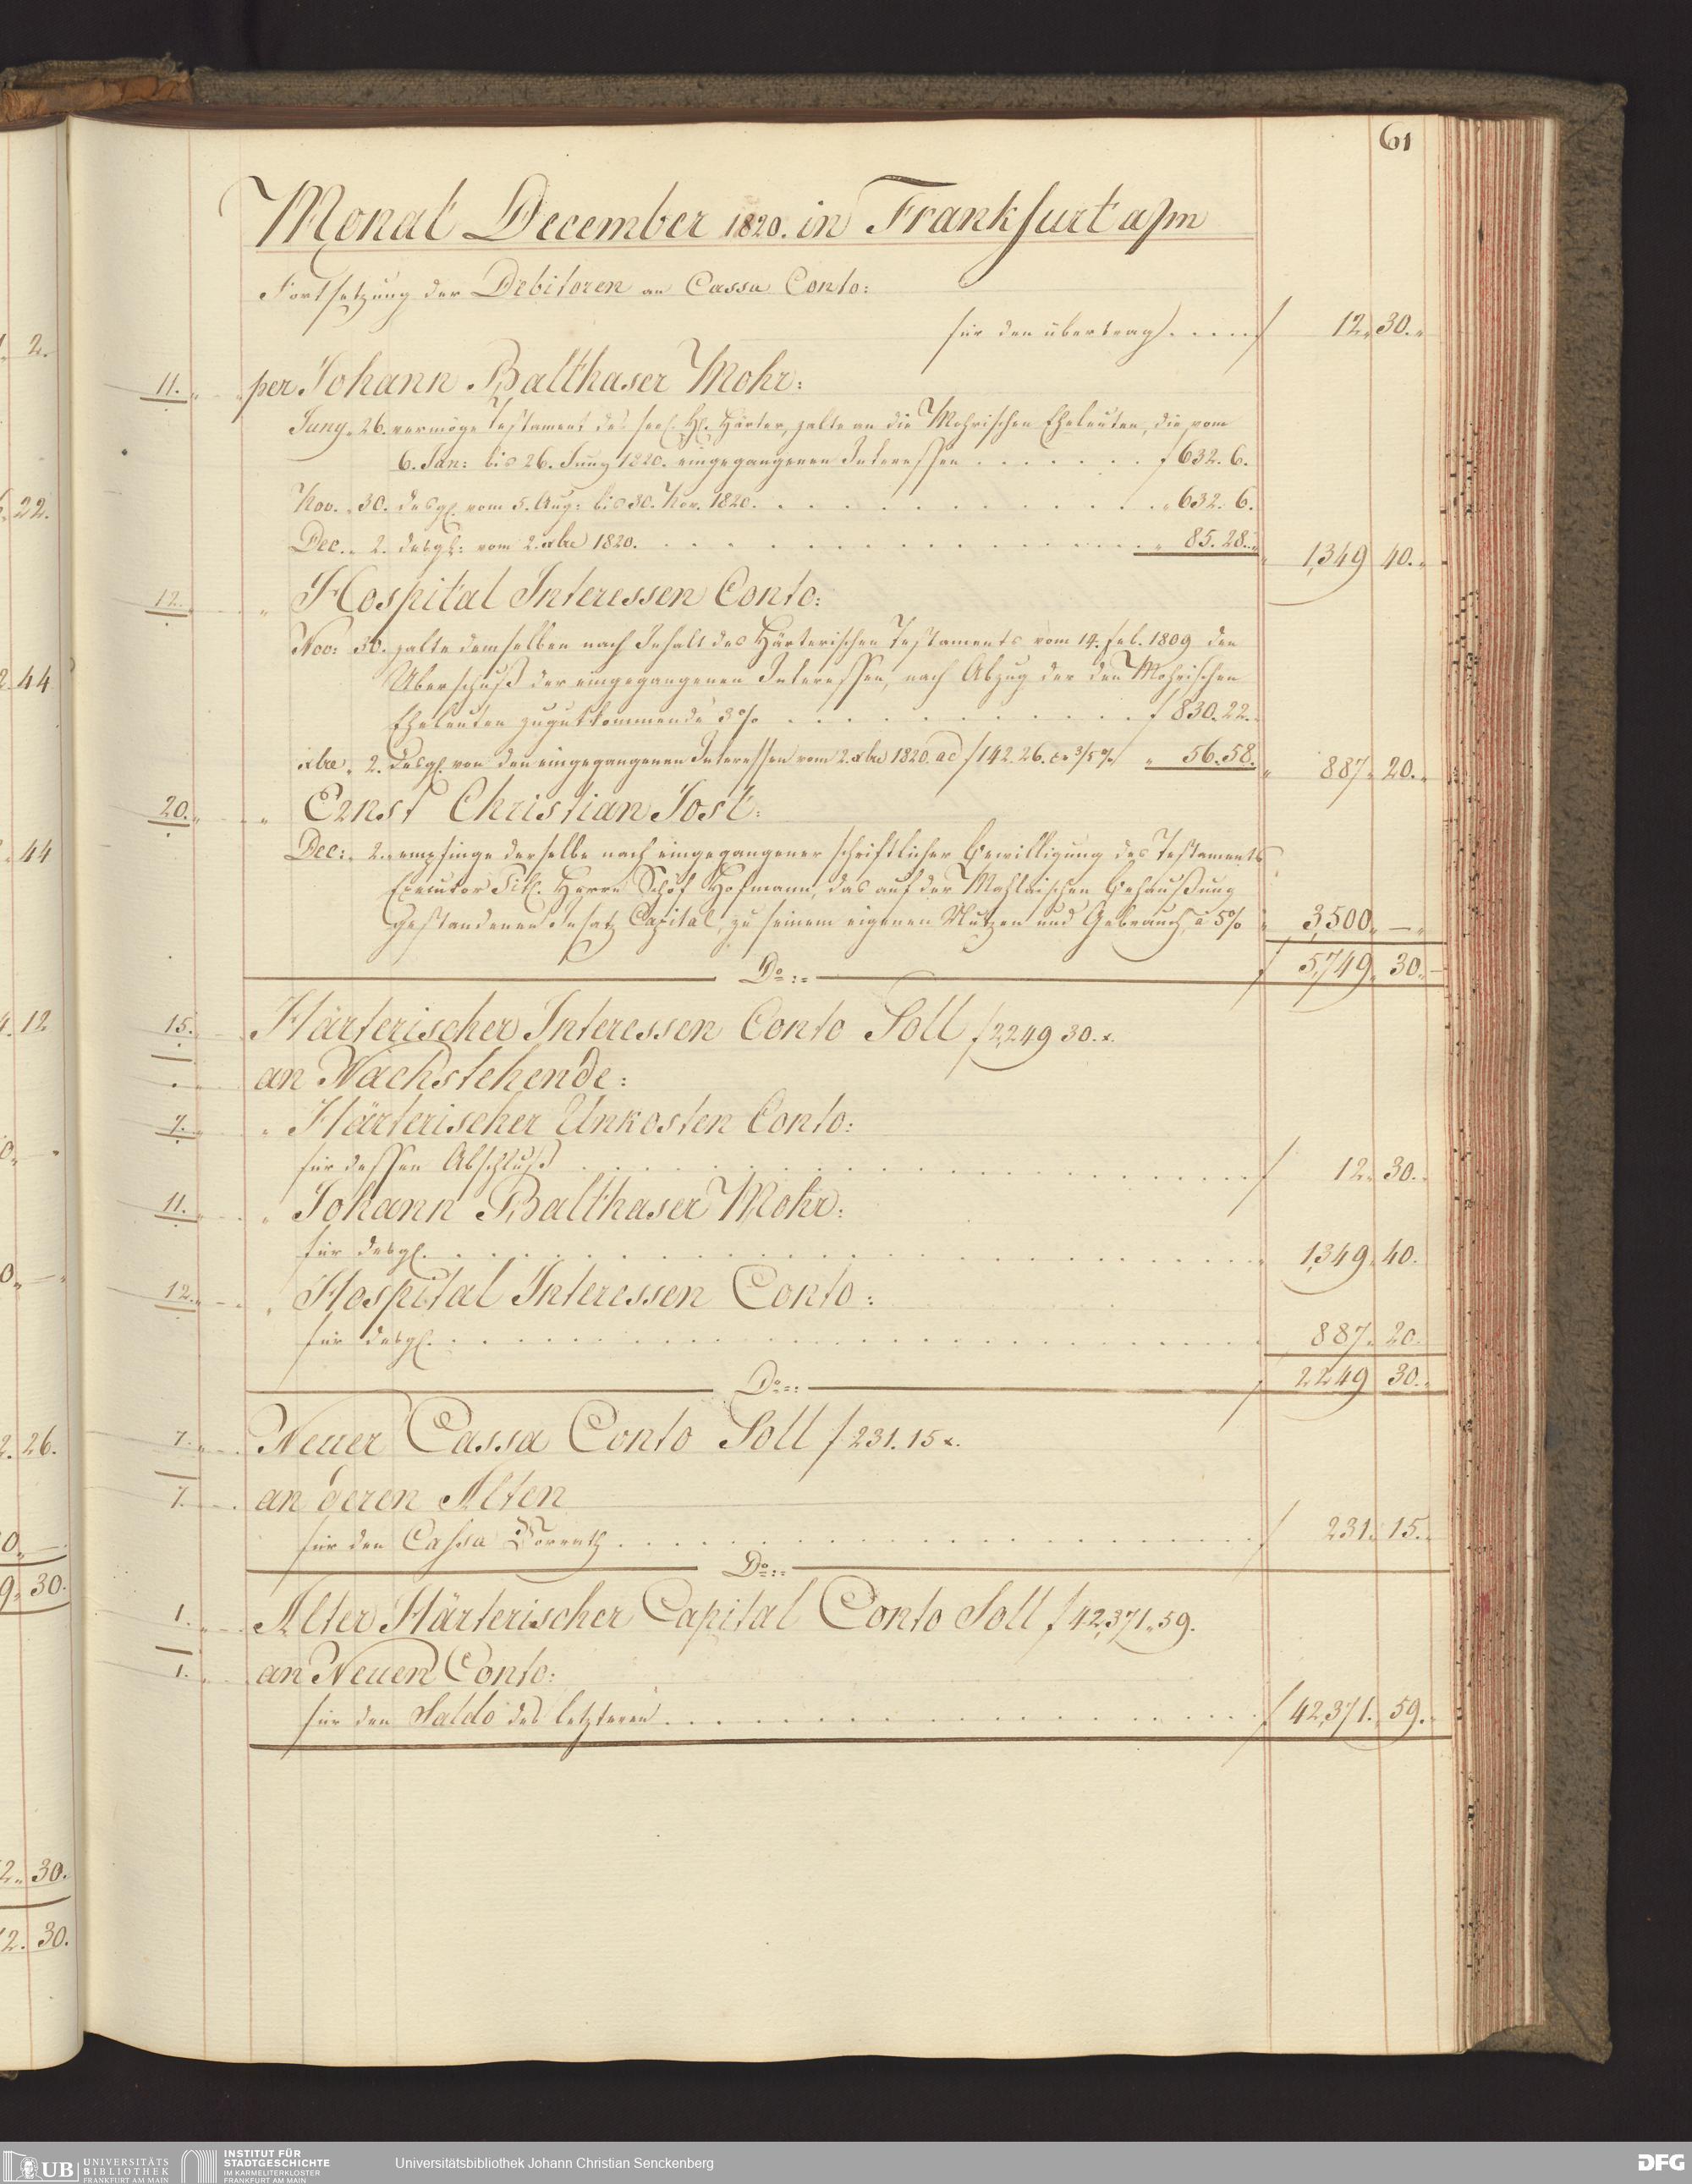 61
Monat December 1820. in Frankfurt a/m
Fortsetzung der Debitoren an Cassa Conto:
für den übertrag f 12. 30.
11. per Johann Balthaser Mohr:
Juny. 26. vermöge Testament des seel. H. Härter, zalte an die Mohrischen Eheleuten, die vom
6. Jan: bis 26. Juny 1820. eingegangenen Interessen f 632. 6.
Nov. 30. desgl. vom 5. Aug: bis 30. Nov. 1820. " 632. 6.
Dec. 2. desgl: vom 2. xbre 1820. " 85. 28. " 1,349 40.
12. " Hospital Interessen Conto:
Nov: 30. zalte demselben nach Inhalt des Härterischen Testaments vom 14. Feb. 1809 den
Überschuß der eingegangenen Interessen, nach Abzug der den Mohrischen
Eheleuten zugutkommende 3% f 830. 22.
xbre. 2. desgl. von den eingegangenen Interessen vom 2. xbre 1820. ad f 142. 26. 3/5% " 56. 58. " 887. 20.
20. " Ernst Christian Jost:
Dec: 2. empfinge derselbe nach eingegangener schriftlicher Bewilligung des Testaments
Executor Titl. Herrn Schöf Hofmann, das auf der Mahlaischen Behaußung
gestandenen Insatz Capital, zu seinem eigenen Nutzen und Gebrauch, à 5% " 3,500. —.
Do: f 5,749. 30.
15. Härterischer Interessen Conto Soll f 2,249 30. x.
an Nachstehende:
7. " Härterischer Unkosten Conto:
für dessen Abschluß f 12. 30.
11. " Johann Balthaser Mohr:
für desgl. " 1,349. 40.
12. " Hospital Interessen Conto:
für desgl. 887. 20.
Do: f 2249 30.
7. Neuer Cassa Conto Soll f 231. 15 x.
7. an deren Alten
für den Cassa Vorrath f 231. 15.
Do:
1. Alter Härterischer Capital Conto Soll f 42,371. 59.
1. an Neuen Conto:
für den Saldo des letzteren f 42,371. 59.
2.
22.
44
44
12
26.
30.
2. 30.
2. 30.
UB UNIVERSITÄTS
BIBLIOTHEK
FRANKFURT AM MAIN
INSTITUT FÜR
STADTGESCHICHTE
IM KARMELITERKLOSTER
FRANKFURT AM MAIN
Universitätsbibliothek Johann Christian Senckenberg
DFG